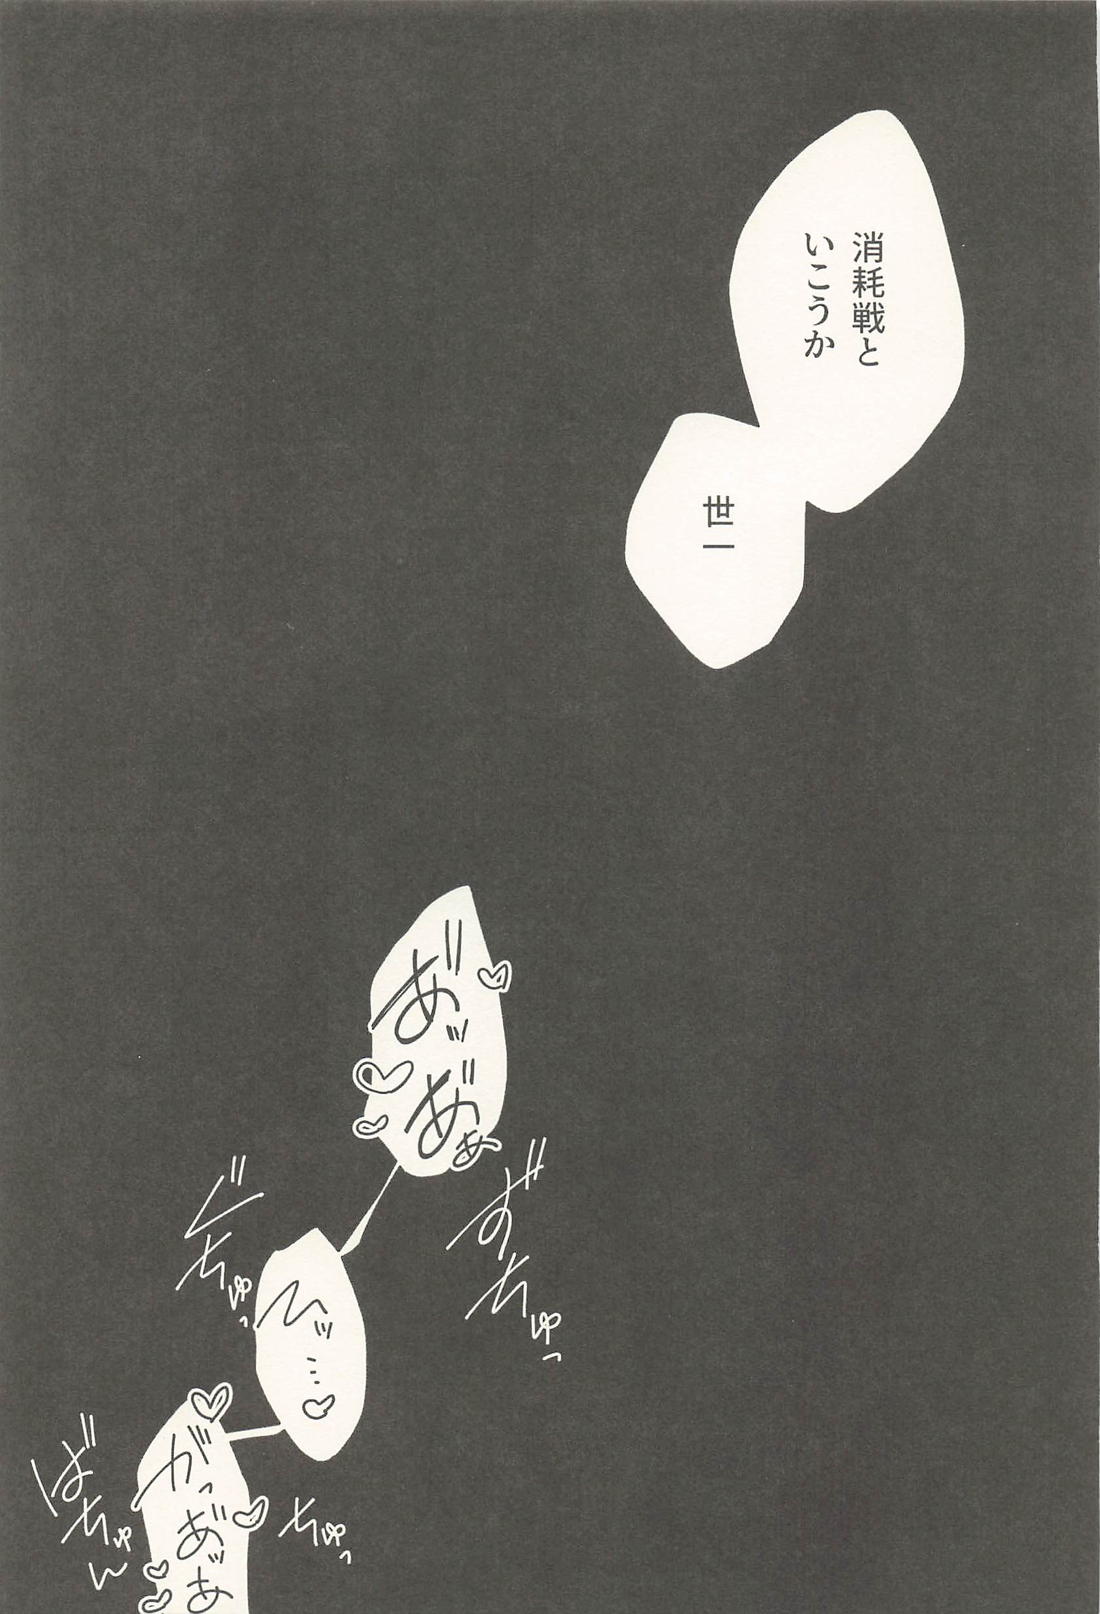 消耗戦と
いこうか
世一
あ゛ッ
あ゛ぁ
ずちゅっ
ぐちゅっ
ひッ…♡
ちゅっ
がっあ゛ッあ
ばちゅん